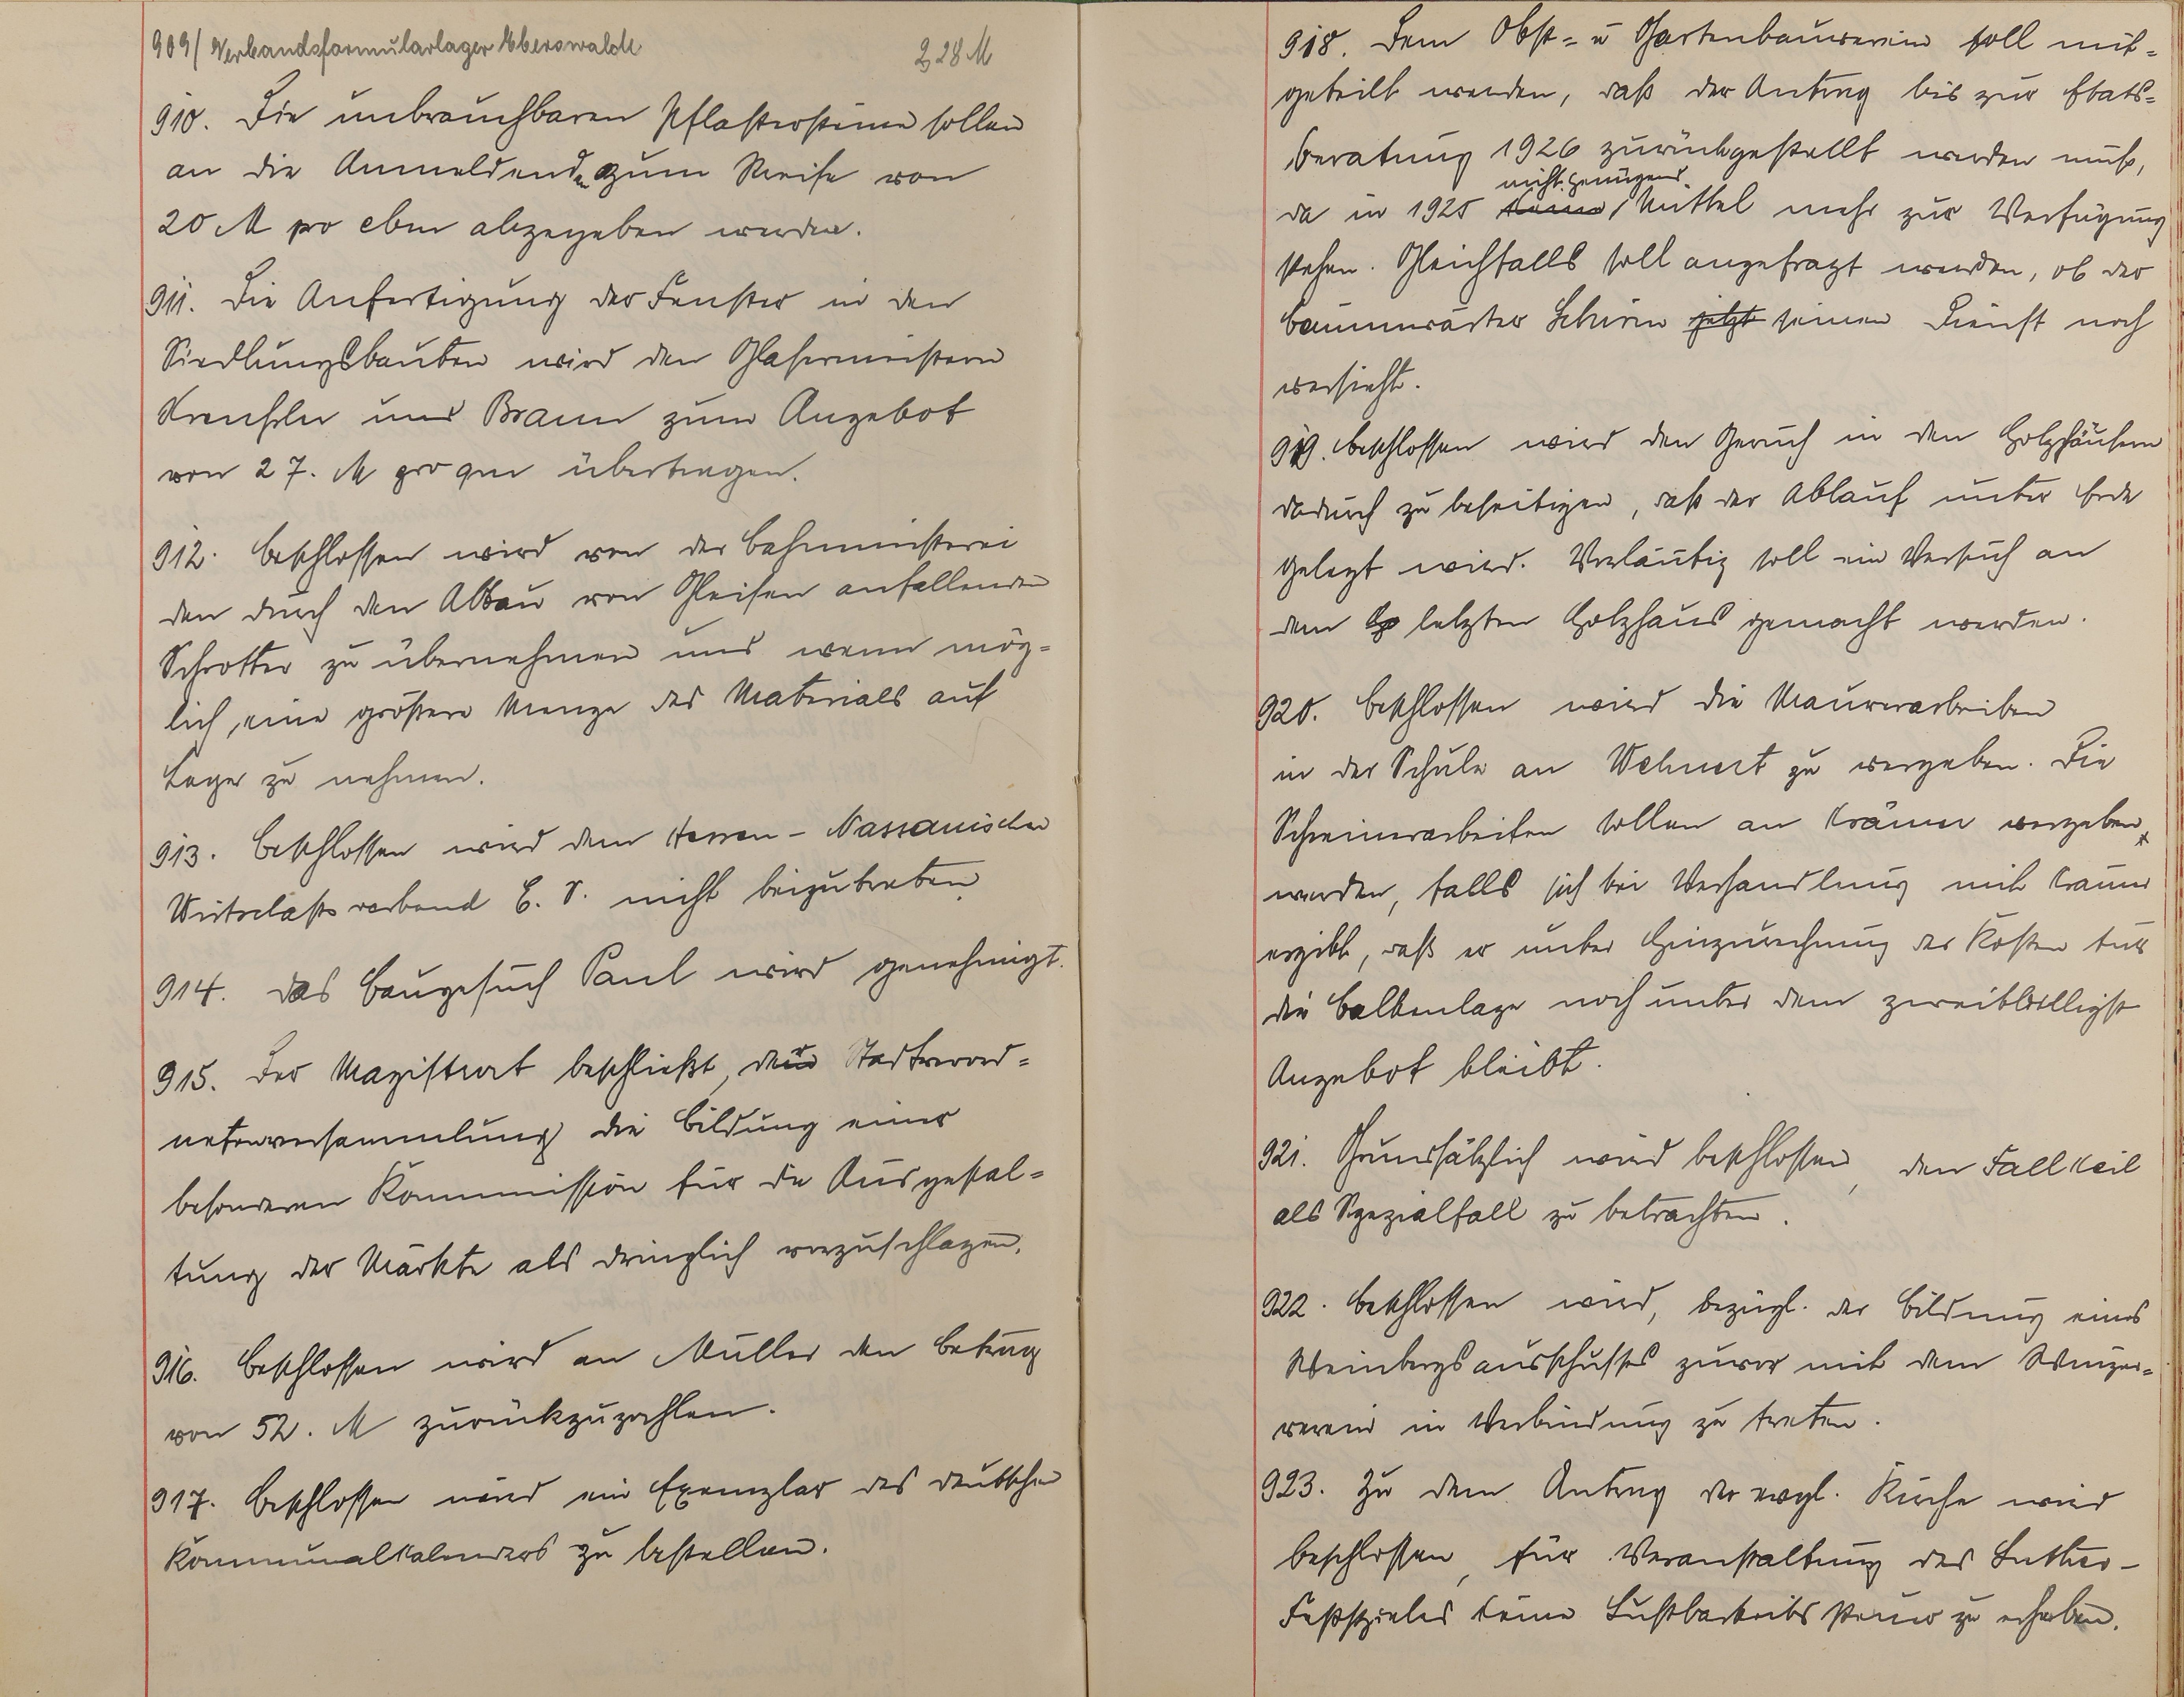 909/ Verbandsformularlager Eberswalde 2,28 M
910. Die unbrauchbaren Pflastersteine sollen
an die Anmeldenden zum Preise von
20 M pro cbm abgegeben werden.
911. Die Anfertigung der Fenster in den
Siedlungsbauten wird den Glasermeistern
und Braun zum Angebot
von 27. M pro qm übertragen.
912. Beschlossen wird von der Bahnmeisterei
den durch den Abbau von Gleisen anfallenden
Schotter zu übernehmen und wenn mög-
lich, eine größere Menge des Materials auf
Lager zu nehmen.
913. Beschlossen wird dem Hessen-Nassauischen
Wirtschaftsverband E. V. nicht beizutreten.
914. Das Baugesuch Paul wird genehmigt.
915. Der Magistrat beschließt, der Stadtverord-
netenversammlung die Bildung einer
besonderen Kommission für die Ausgestal-
tung der Märkte als dringlich vorzuschlagen.
916. Beschlossen wird an Müller den Betrag
von 52. M zurückzuzahlen.
917. Beschlossen wird ein Exemplar des deutschen
Kommunalkalenders zu bestellen.
918. Dem Obst- u Gartenbauverein soll mit-
geteilt werden, daß der Antrag bis zur Etats-
beratung 1926 zurückgestellt werden muß,
nicht genügend
da in 1925 keine Mittel mehr zur Verfügung
stehen. Gleichfalls soll angefragt werden, ob der
Baumwärter jetzt seinen Dienst noch
versieht.
919. Beschlossen wird den Geruch in den Holzhäusern
dadurch zu beseitigen, daß der Ablauf unter Erde
gelegt wird. Vorläufig soll ein Versuch an
dem letzten Holzhaus gemacht werden.
920. Beschlossen wird die Maurerarbeiten
in der Schule an Wehnert zu vergeben. Die
Schreinerarbeiten sollen an Krämer vergeben
werden, falls sich bei Verhandlung mit
ergibt, daß er unter Hinzurechnung der Kosten für
die Balkenlage noch unter dem zweitbilligst
Angebot bleibt.
921. Grundsätzlich wird beschlossen, den Fall Keil
als Spezialfall zu betrachten.
922. Beschlossen wird, bezügl. der Bildung eines
Weinbergsausschusses zuvor mit dem Winzer-
verein in Verbindung zu treten.
923. Zu dem Antrag der evgl. Kirche wird
beschlossen, für Veranstaltung des Luther-
Festspieles keine Lustbarkeitssteuer zu erheben.